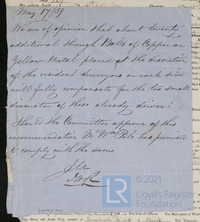 May 17/59
We are of opinion that about twenty
additional through Bolts of Copper or
Yellow Metal, placed at the discretion
of the resident surveyors on each side
will fully compensate for the too small
diameter of those already driven?
Should the Committee approve of this
recommendation Mr Wm Pile has promised
to comply with the same
©2021
Lloyd's Register
Foundation